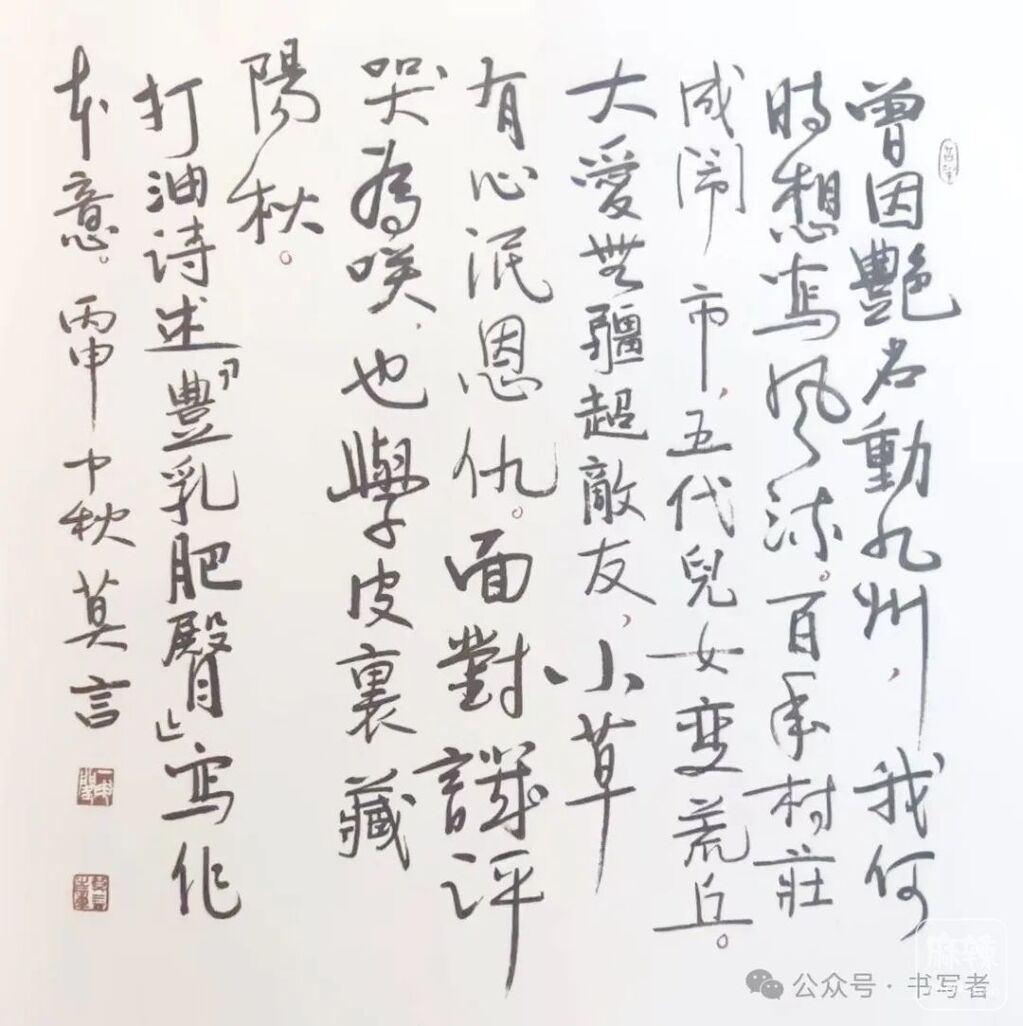 曾因艷名動九州，我何
時想寫風流。百年村莊
成鬧市，五代兒女變荒丘。
大愛無疆超敵友，小草
有心泯恩仇。面對譏评
哭為咲，也學皮裏藏
陽秋。
打油诗述『豐乳肥臀』寫作
本意。丙申中秋 莫言
麻辣
公众号 · 书写者